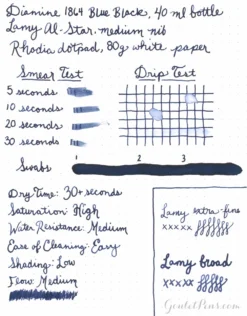 Diamine 1864 Blue Black, 40 ml bottle
Lamy Al-Star, medium nib
Rhodia dotpad, 80g white paper
Smear Test
Drip Test
5 seconds
10 seconds
20 seconds
30 seconds
Swabs
1 2 3
Dry Time: 30+ seconds
Saturation: High
Water Resistance: Medium
Ease of Cleaning: Easy
Shading: Low
Flow: Medium
Lamy extra-fine
xxxxx
Lamy broad
xxxxx
GouletPens.com